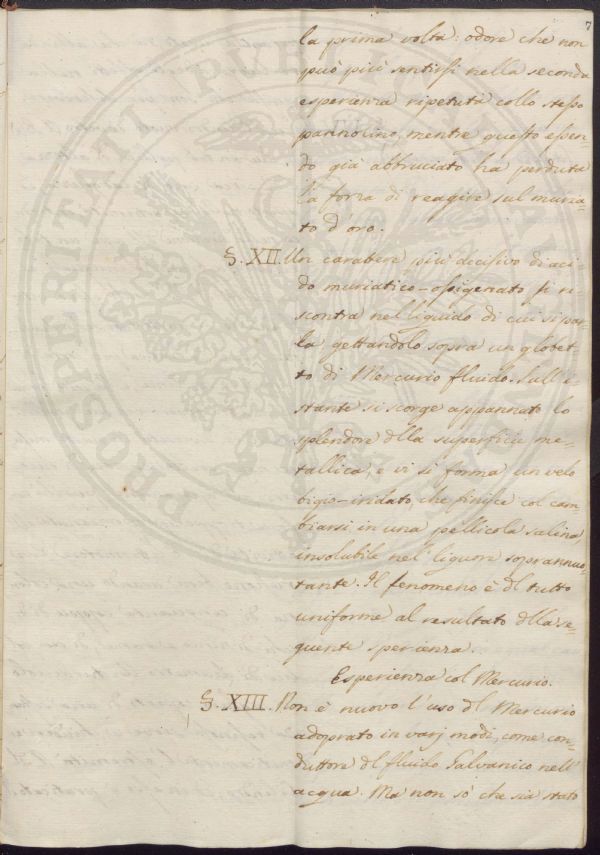 7
la prima volta: odore che non
può più sentirsi nella seconda
esperienza ripetuta collo stesso
pannolino, mentre questo essen-
do già abbruciato ha perduta
la forza di reagire sul muria-
to d'oro.
§. XII. Un carabere più decisivo di aci-
do muriatico-ossigenato si ri-
scontra nel liquido di cui si par-
la, gettandolo sopra un globet-
to di Mercurio fluido. Sull'i-
stante si scorge appannato lo
splendore dlla superficie me-
tallica, e vi si forma un velo
bigio-iridato, che finisce col cam-
biarsi in una pellicola salina
insolubile nel liquori soprannuo-
tante. Il fenomeno è dl tutto
uniforme al resultato dlla se-
guente sperienza.
Esperienza col Mercurio.
§. XIII. Non è nuovo l'uso dl Mercurio
adoprato in varj modi, come con-
duttore dl fluido Galvanico nell'
acqua. Ma non sò che sia stato
PROSPERITATI PUBLICAE AU